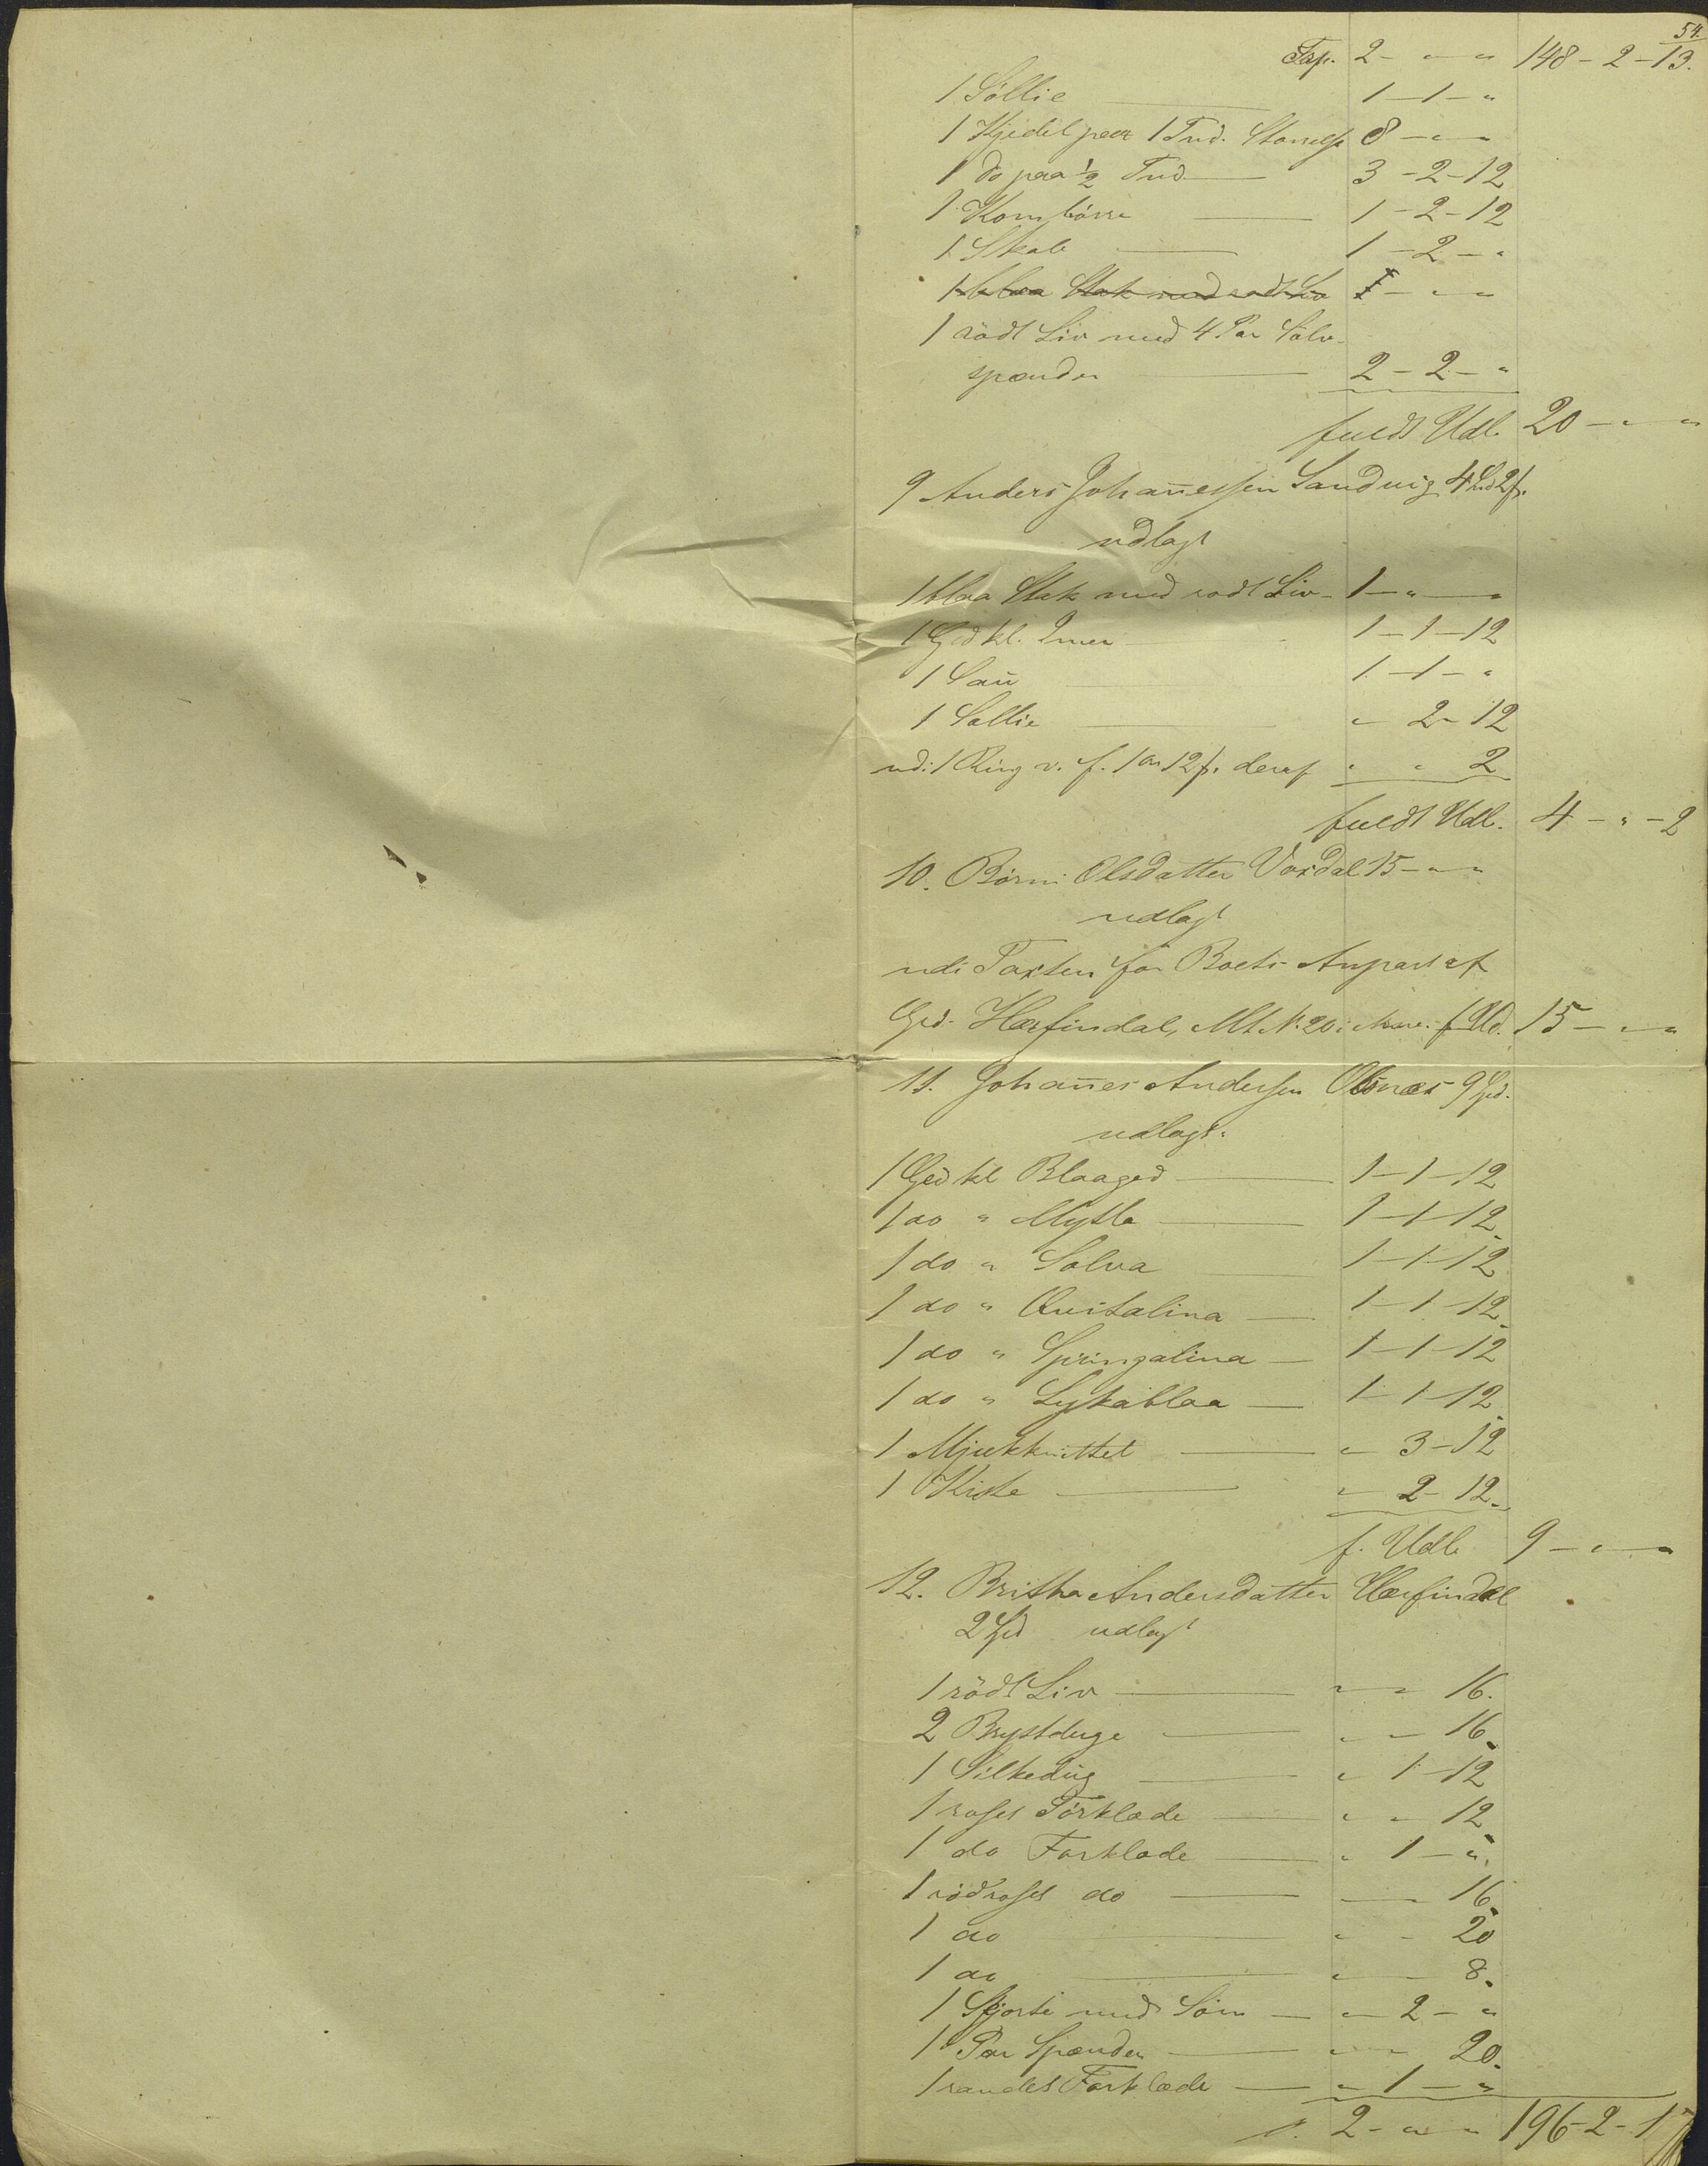 54.
Tsp. 2 - " - " 148 - 2 - 13.
1 Söllie 1 - 1 - "
1 Kjedel paa 1 Tnd. Størrelse 8 - " - "
1 do paa ½ Tnd 3 - 2 - 12
1 Kornbörre 1 - 2 - 12
1 Skab 1 - 2 - "
1 blaa Stak med rødt Liv 1 - " - "
1 rödt Liv med 4 Par Sölv-
spænder 2 - 2 - "
fuldt Udl. 20 - " - "
9 Anders Johannessen Sandvig 4 2
udlagt
1 blaa Stak med rødt Liv - 1 - " - "
1 Ged kl. 1 - 1 - 12
1 Sau 1 - 1 - "
1 Sollie " 2 - 12
udi 1 Ring v. f. 1 Ort 12 ß. deraf " " 2
fuldt Udl. 4 - " - 2
10. Börni Olsdatter Voxdal 15 - " - "
udlagt
udi Taxten for Boets Anpart af
Grd. Hæfindal, Mt. N. 20 f Ud. 15 - " - "
11. Johannes Andersen Olsnæs 9 Spd.
udlagt:
1 Ged kl Blaaged 1 - 1 - 12
1 do " Mytla 1 - 1 - 12
1 do " Solva 1 - 1 - 12
1 do " Qvitalina 1 - 1 - 12
1 do " Springalina 1 - 1 - 12
1 do " Lykablaa 1 - 1 - 12
1 " 3 - 12
1 Kiste " 2 - 12
f. Udl. 9 - " - "
12. Britha Andersdatter Hæfindal
2 Spd udlagt
1 rödt Liv " " 16.
2 Brystduge " - 16
1 Silkedug " 1 - 12
1 roset Törklæde " " 12
1 do Forklæde " 1 - "
1 rödroset do " 16
1 do " - 20
1 do " 8.
1 Skjorte med Söm " 2 - "
1 Par Spænder " - 20.
1 randet Forklæde " 1 - "
2 - " - " 196 - 2 - 17